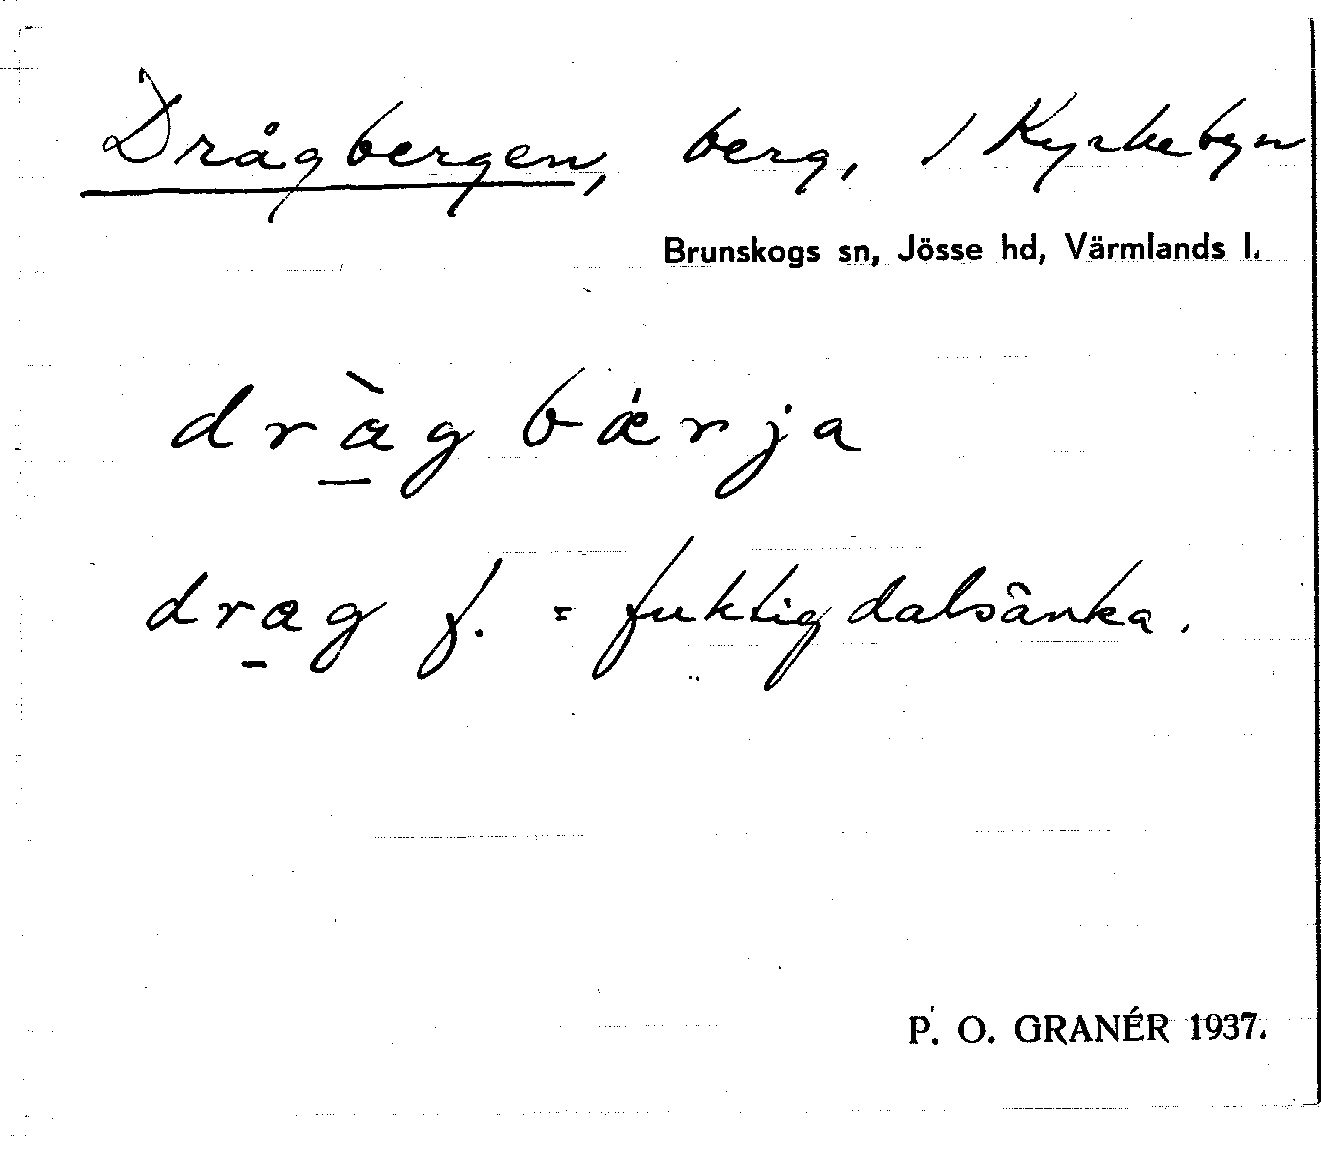 Drågbergen, berg, / Kyrkebyn
Brunskogs sn, Jösse hd, Värmlands l.
dràg bǽrja
drag f. = fuktig dalsänka.
P. O. GRANÉR 1937.